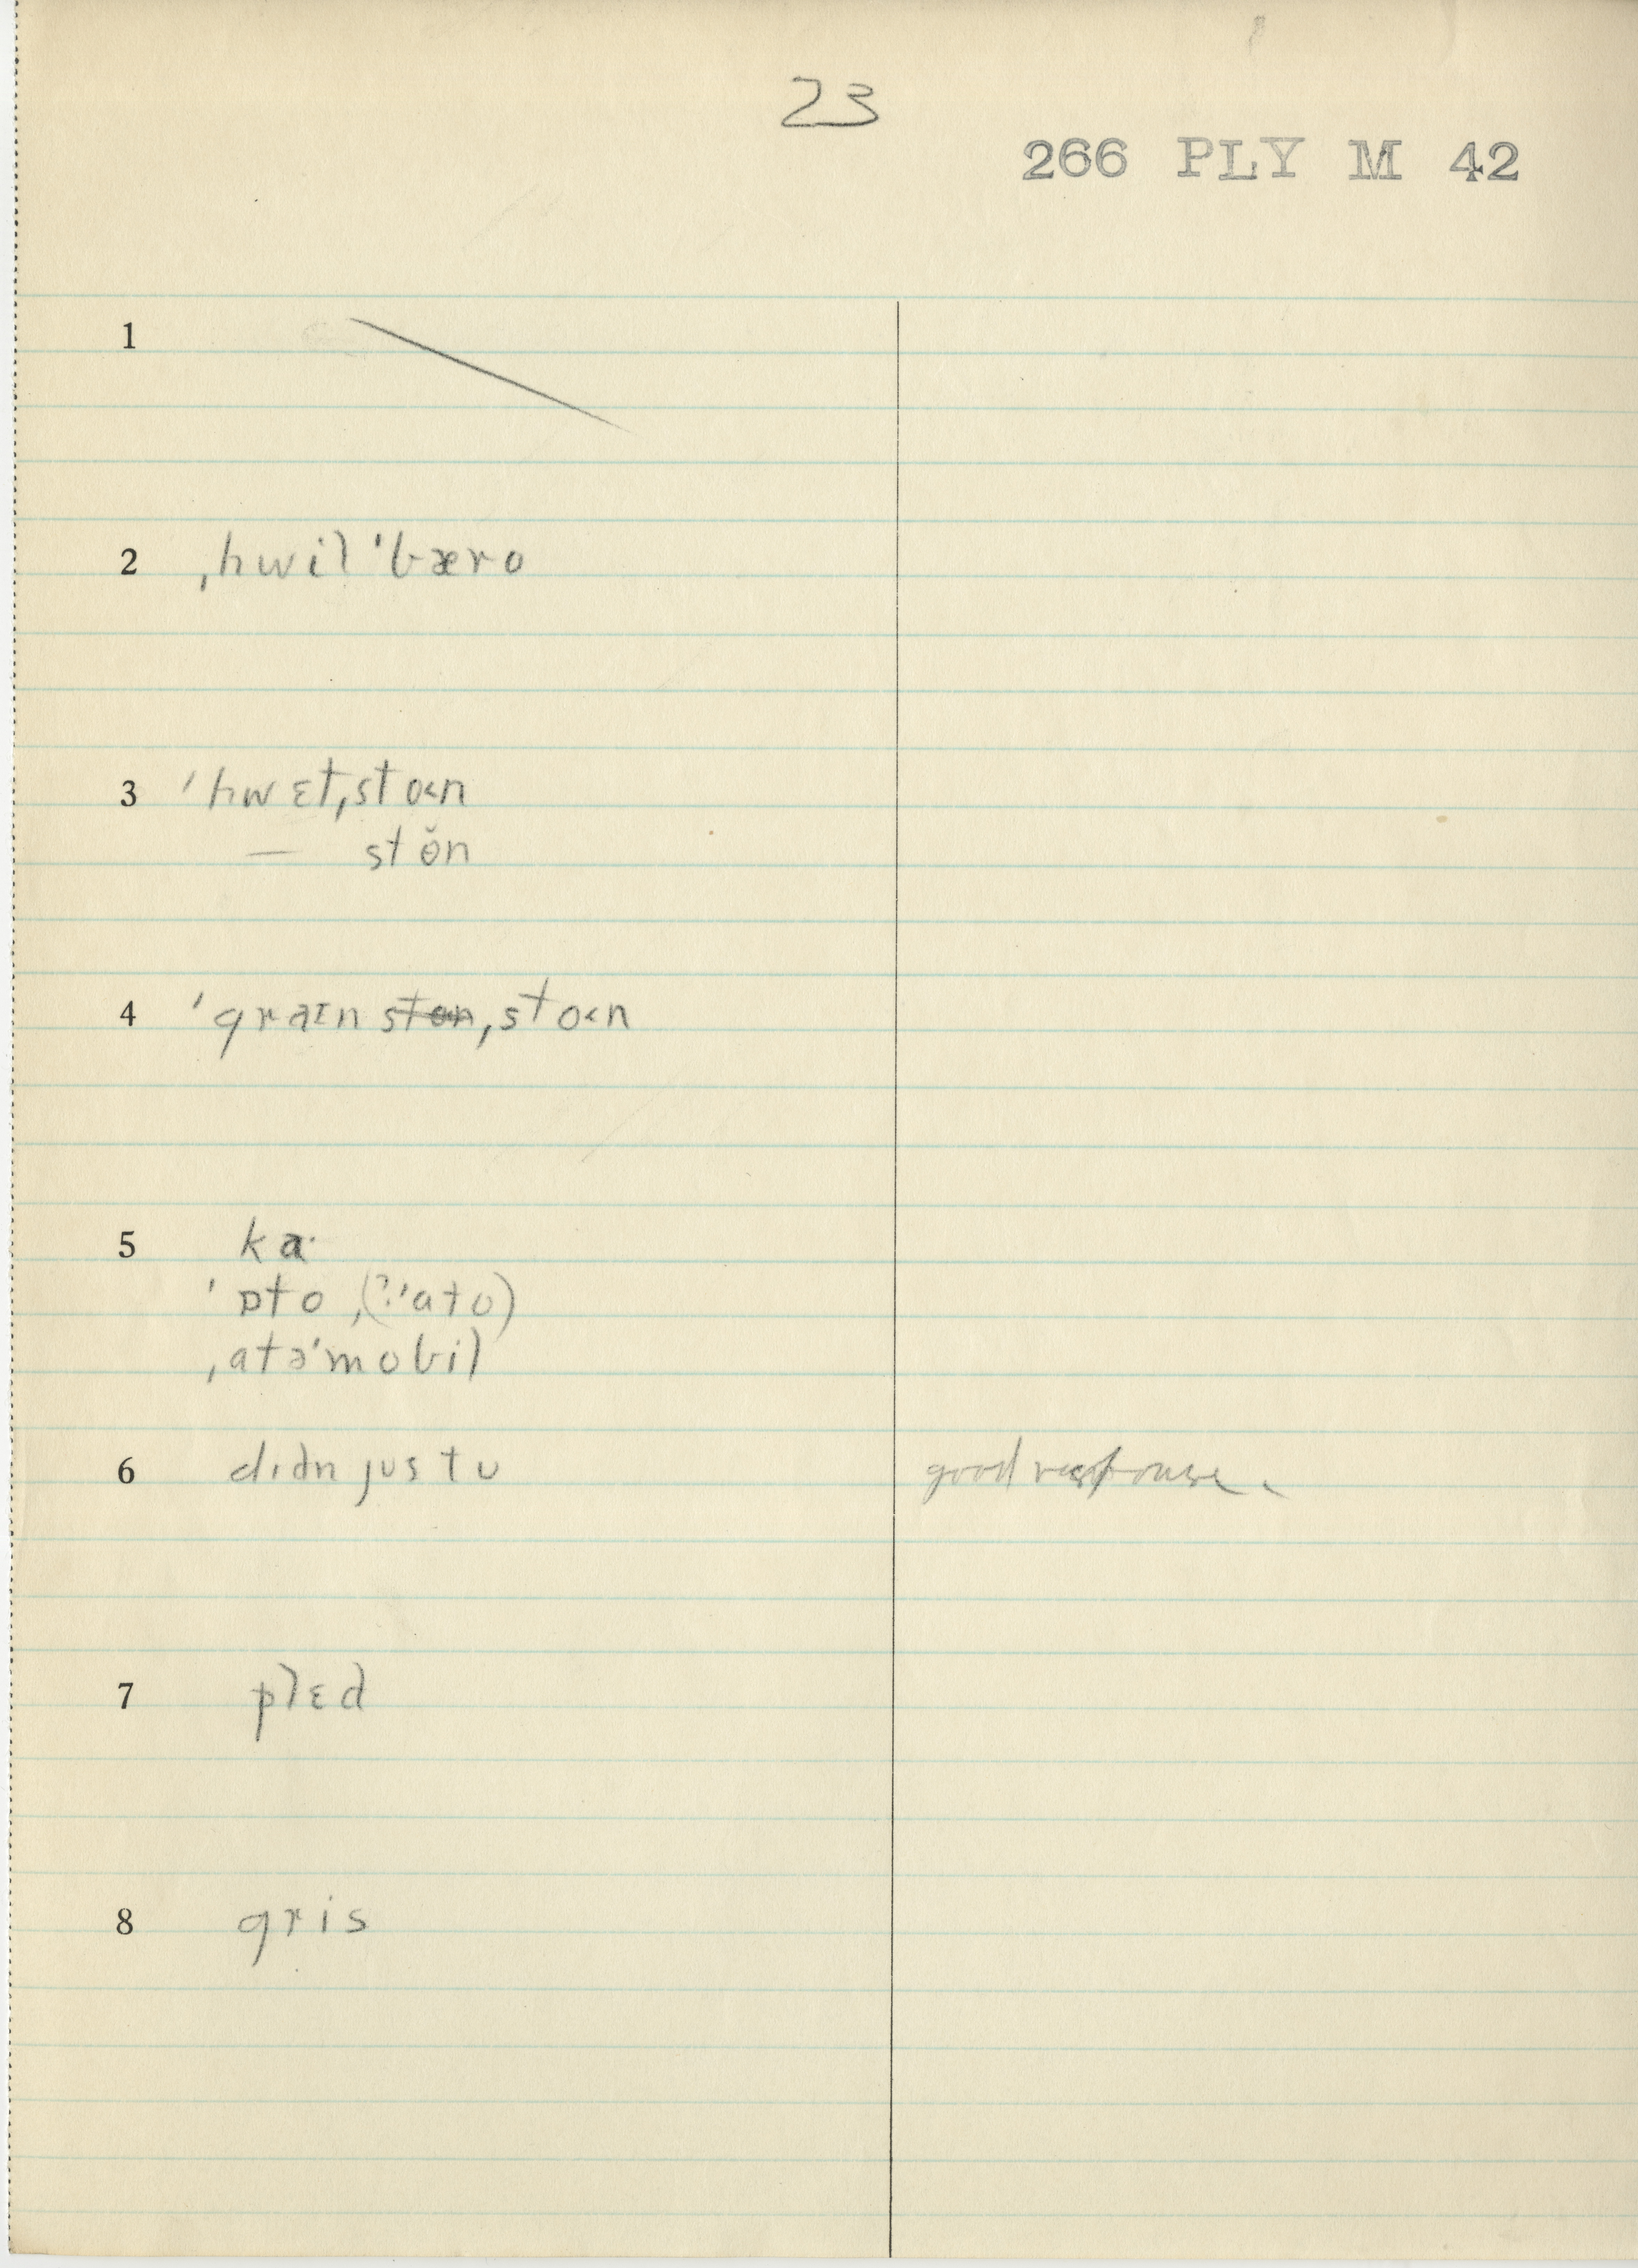 23
266 PLY M 42
1
2 ˌhwil ˈbæro
3 ˈhwɛtˌsto˂n
— stŏn
4 ˈgraɪn ston ˌsto˂n
5 ka·
ˈɒto ,(?ˈato)
ˌatəˈmobil
6 dɪdn jus tu good response.
7 plɛd
8 gris